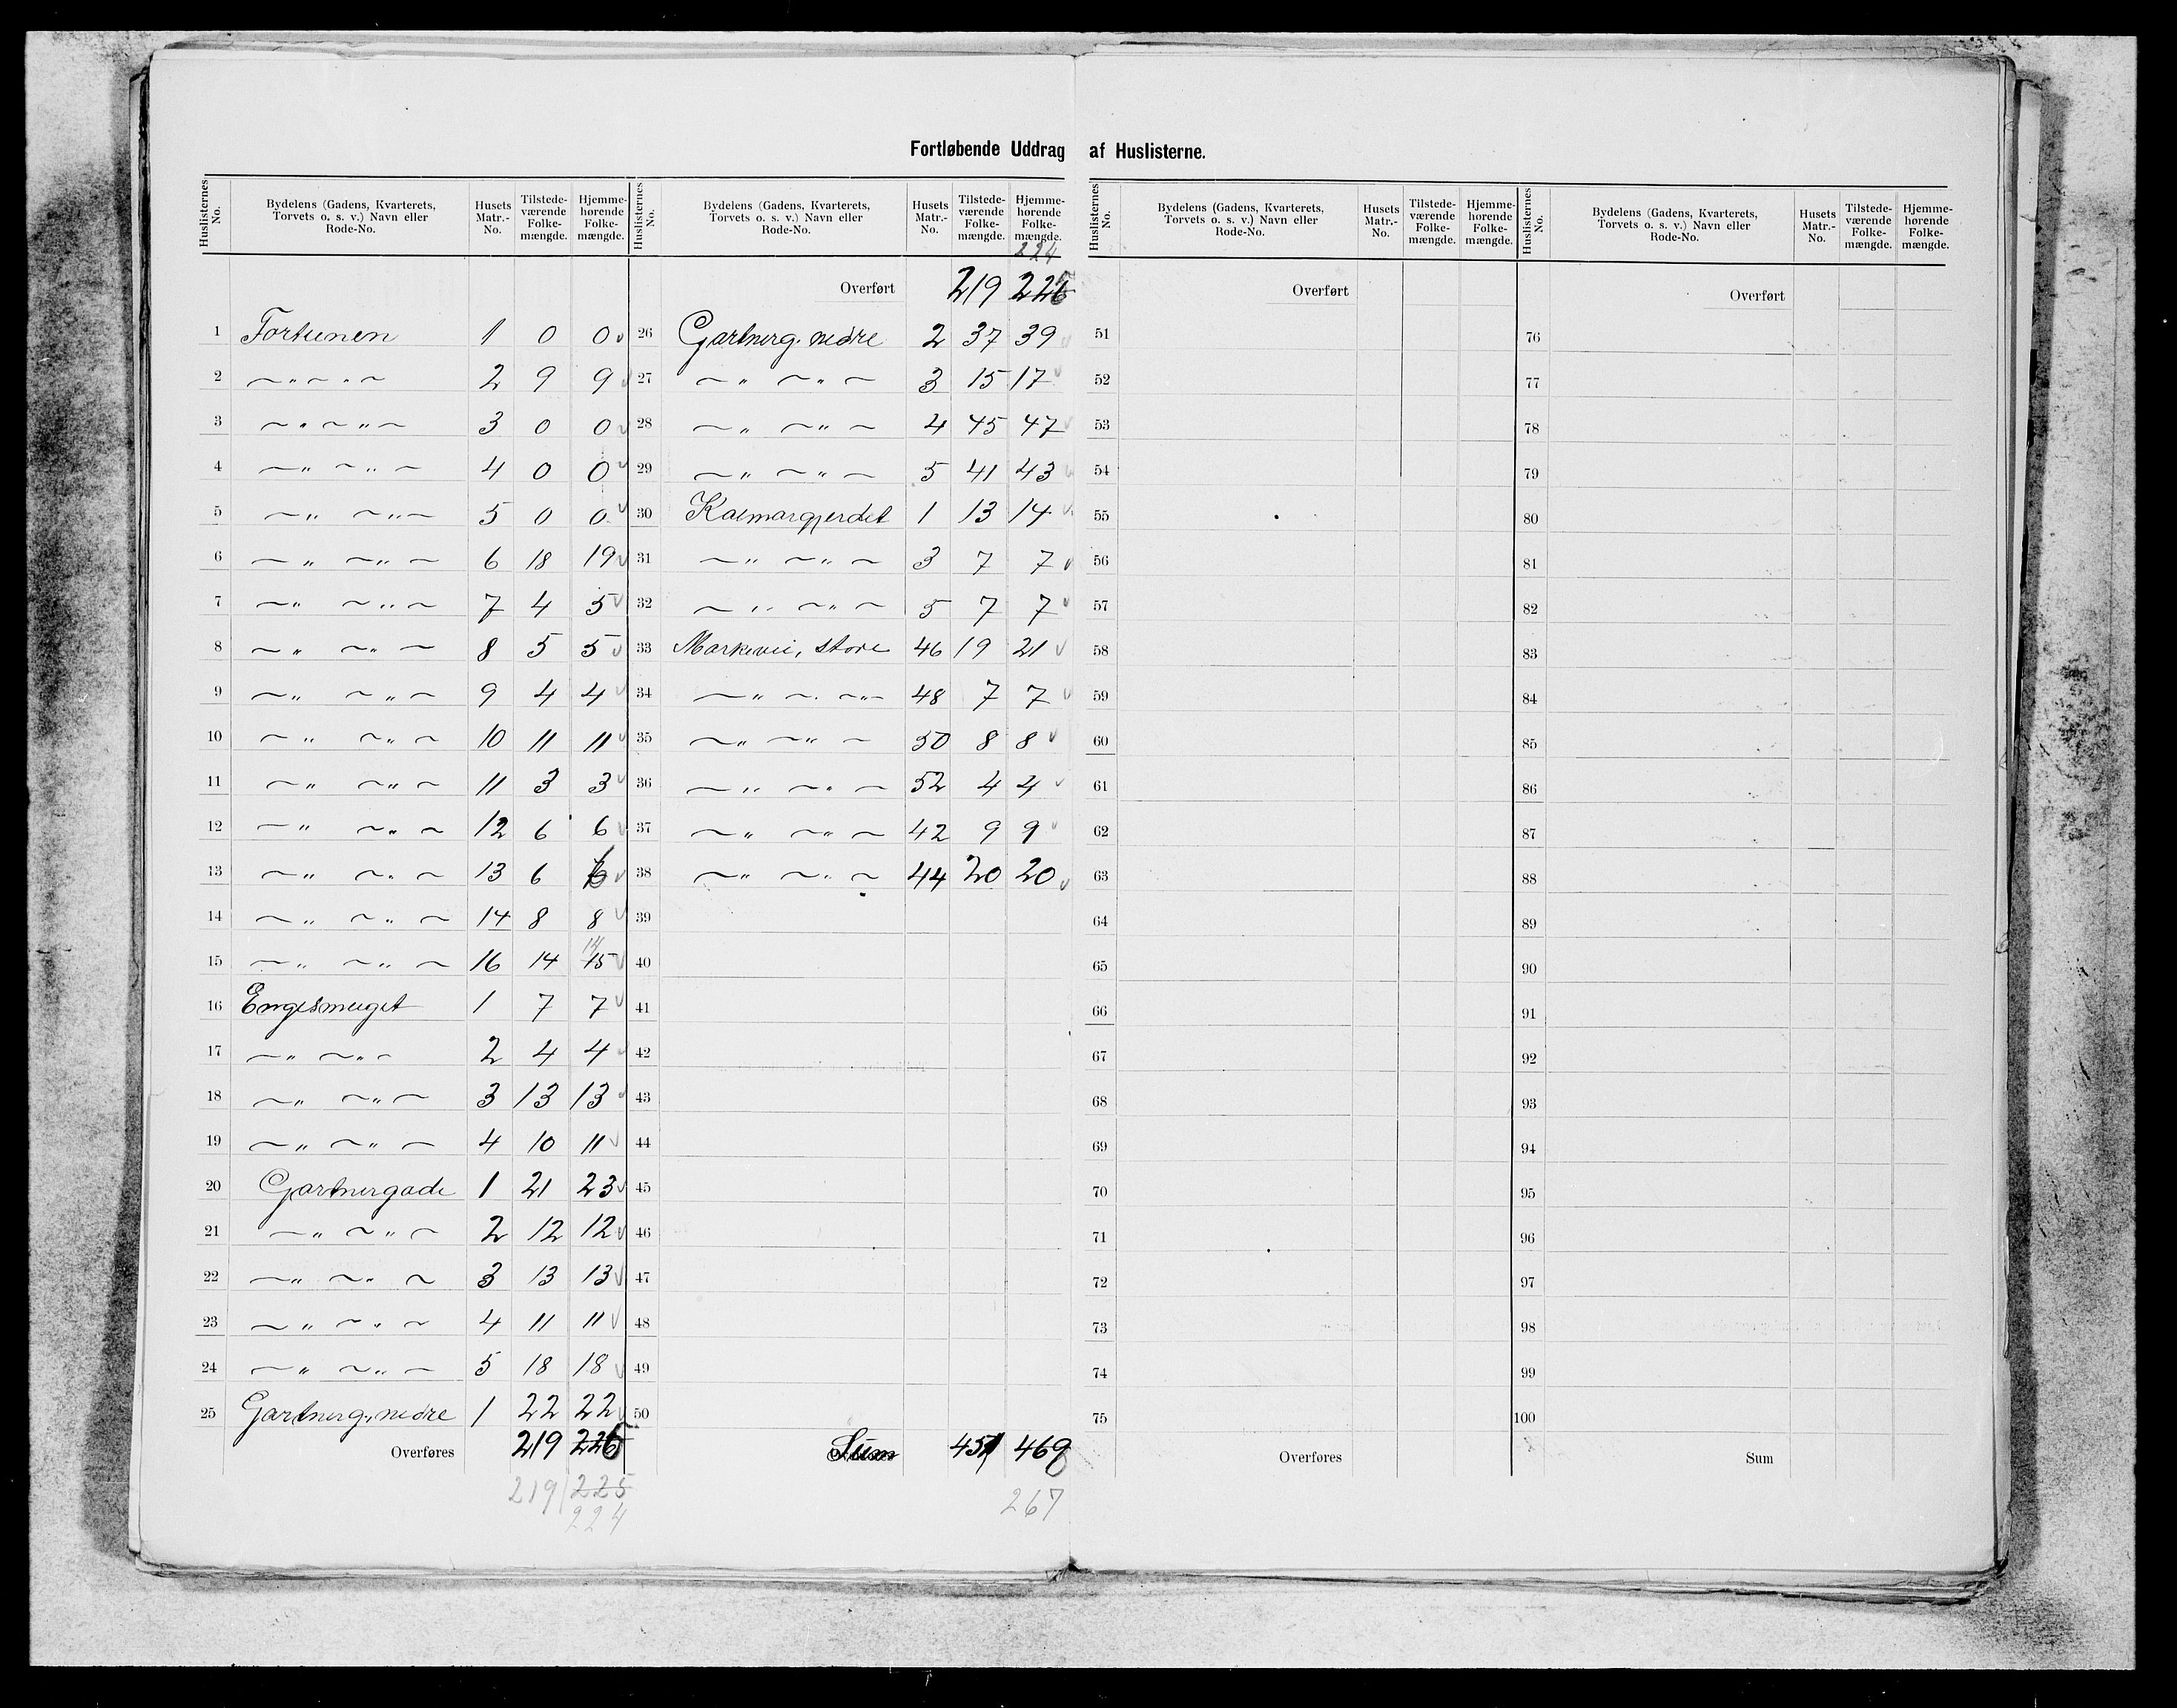 Fortløbende Uddrag af Huslisterne.
Huslisternes No. Bydelens (Gadens, Kvarterets, Torvets o. s. v.) Navn eller Rode-No. Husets Matr.-No. Tilstede-værende Folke-mængde. Hjemme-hørende Folke-mængde.
1 Fortunen 1 0 0 v
2 〃 〃 2 9 9 v
3 〃 〃 3 0 0 v
4 〃 〃 4 0 0 v
5 〃 〃 5 0 0 v
6 〃 〃 6 18 19 v
7 〃 〃 7 4 5 v
8 〃 〃 8 5 5 v
9 〃 〃 9 4 4 v
10 〃 〃 10 11 11 v
11 〃 〃 11 3 3 v
12 〃 〃 12 6 6 v
13 〃 〃 13 6 6 v
14 〃 〃 14 8 8 v
14
15 〃 〃 16 14 15 v
16 Engesmuget 1 7 7 v
17 〃 〃 2 4 4 v
18 〃 〃 3 13 13 v
19 〃 〃 4 10 11 v
20 Gartnergade 1 21 23 v
21 〃 〃 2 12 12 v
22 〃 〃 3 13 13 v
23 〃 〃 4 11 11 v
24 〃 〃 5 18 18 v
25 Gartnerg., nedre 1 22 22 v
Overføres 219 226
219 225
224
Huslisternes No. Bydelens (Gadens, Kvarterets, Torvets o. s. v.) Navn eller Rode-No. Husets Matr.-No. Tilstede-værende Folke-mængde. Hjemme-hørende Folke-mængde.
224
Overført 219 226
26 Gartnerg. nedre 2 37 39 v
27 〃 〃 3 15 17 v
28 〃 〃 4 45 47 v
29 〃 〃 5 41 43 v
30 Kalmargjerdet 1 13 14 v
31 〃 〃 3 7 7 v
32 〃 〃 5 7 7 v
33 Markevei, store 46 19 21 v
34 〃 〃 48 7 7 v
35 〃 〃 50 8 8 v
36 〃 〃 52 4 4 v
37 〃 〃 42 9 9 v
38 〃 〃 44 20 20 v
39
40
41
42
43
44
45
46
47
48
49
50
Sum 451 469
267
Huslisternes No. Bydelens (Gadens, Kvarterets, Torvets o. s. v.) Navn eller Rode-No. Husets Matr.-No. Tilstede-værende Folke-mængde. Hjemme-hørende Folke-mængde.
Overført
51
52
53
54
55
56
57
58
59
60
61
62
63
64
65
66
67
68
69
70
71
72
73
74
75
Overføres
Huslisternes No. Bydelens (Gadens, Kvarterets, Torvets o. s. v.) Navn eller Rode-No. Husets Matr.-No. Tilstede-værende Folke-mængde. Hjemme-hørende Folke-mængde.
Overført
76
77
78
79
80
81
82
83
84
85
86
87
88
89
90
91
92
93
94
95
96
97
98
99
100
Sum